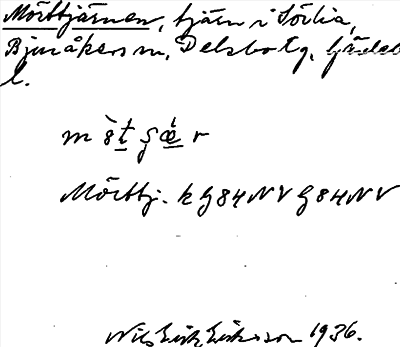 Mörttjärnen, tjärn i Sörlia,
Bjuråkers sn, Delsbo tg, Gävleb
l.
Mörttj. k G84NV G84NV
Nils Erik Eriksson 1936.